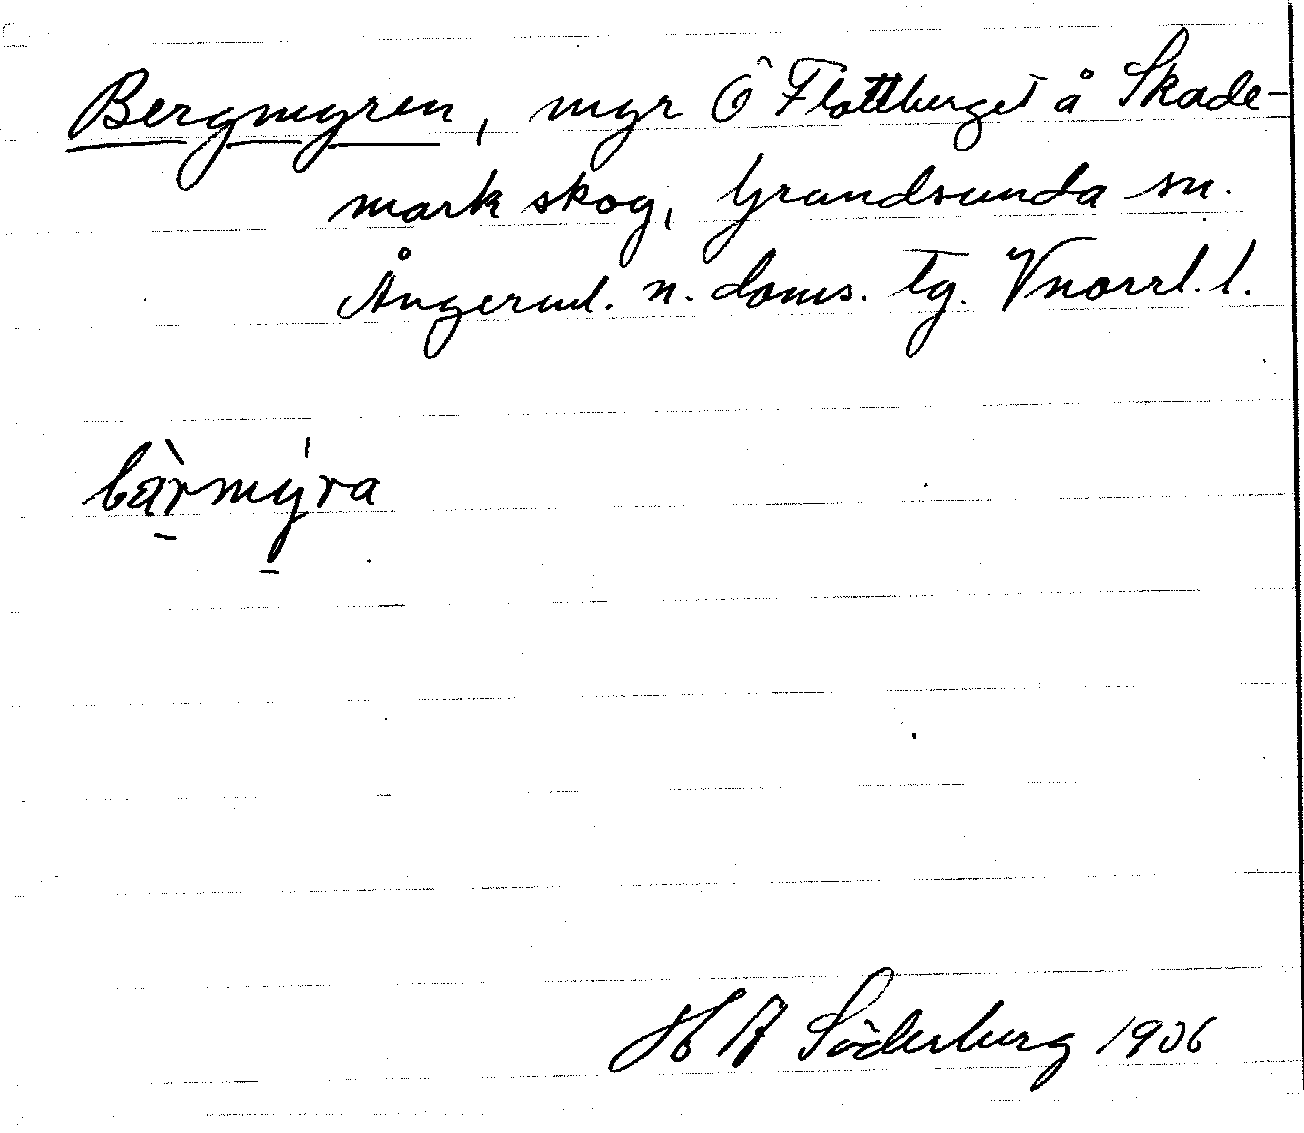 Bergmyren, myr Ö Flottberget å Skade-
mark skog, Grundsunda sn.
Ångerml. n. doms. tg. Vnorrl. l.
bàrmýra
H A Söderberg 1906